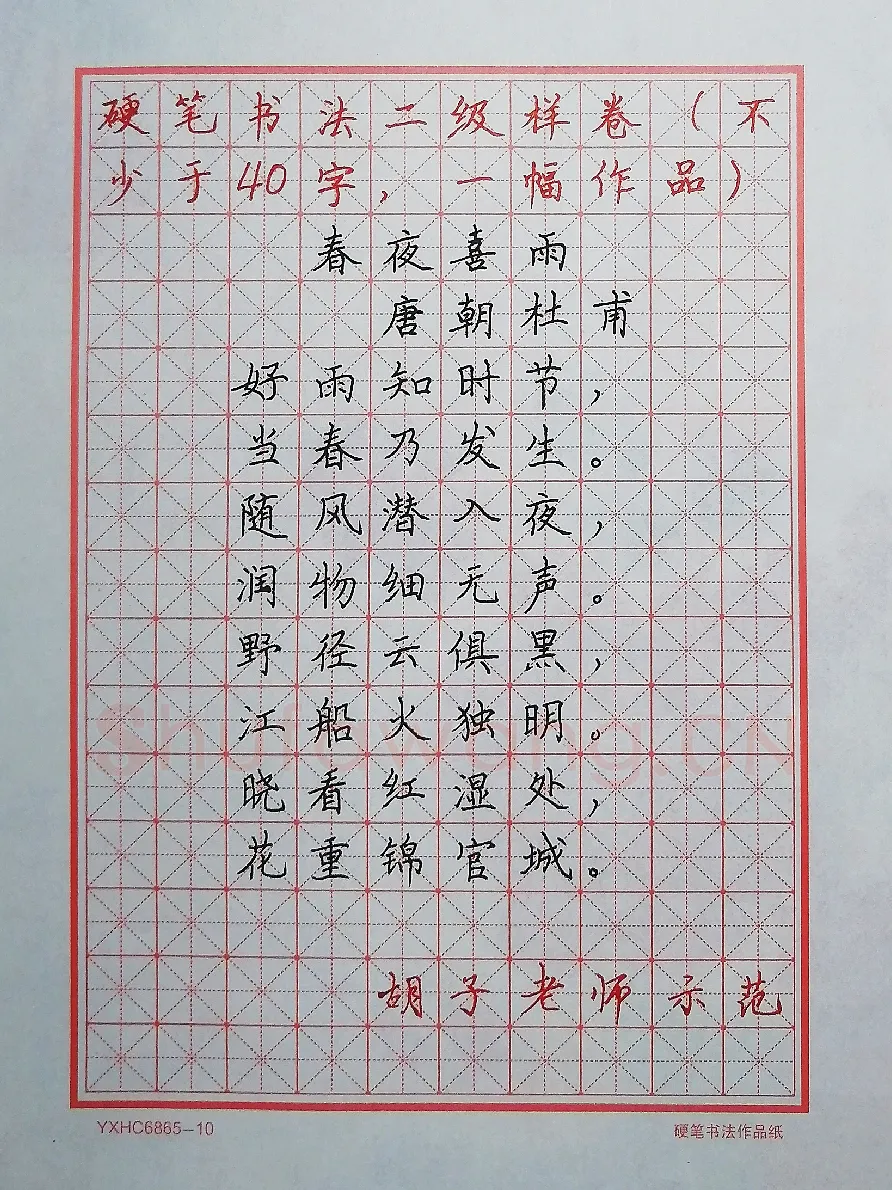 硬笔书法二级样卷（不
少于40字，一幅作品）
春夜喜雨
唐朝杜甫
好雨知时节，
当春乃发生。
随风潜入夜，
润物细无声。
野径云俱黑，
江船火独明。
晓看红湿处，
花重锦官城。
胡子老师示范
YXHC6865-10
硬笔书法作品纸
Shufawang.CN